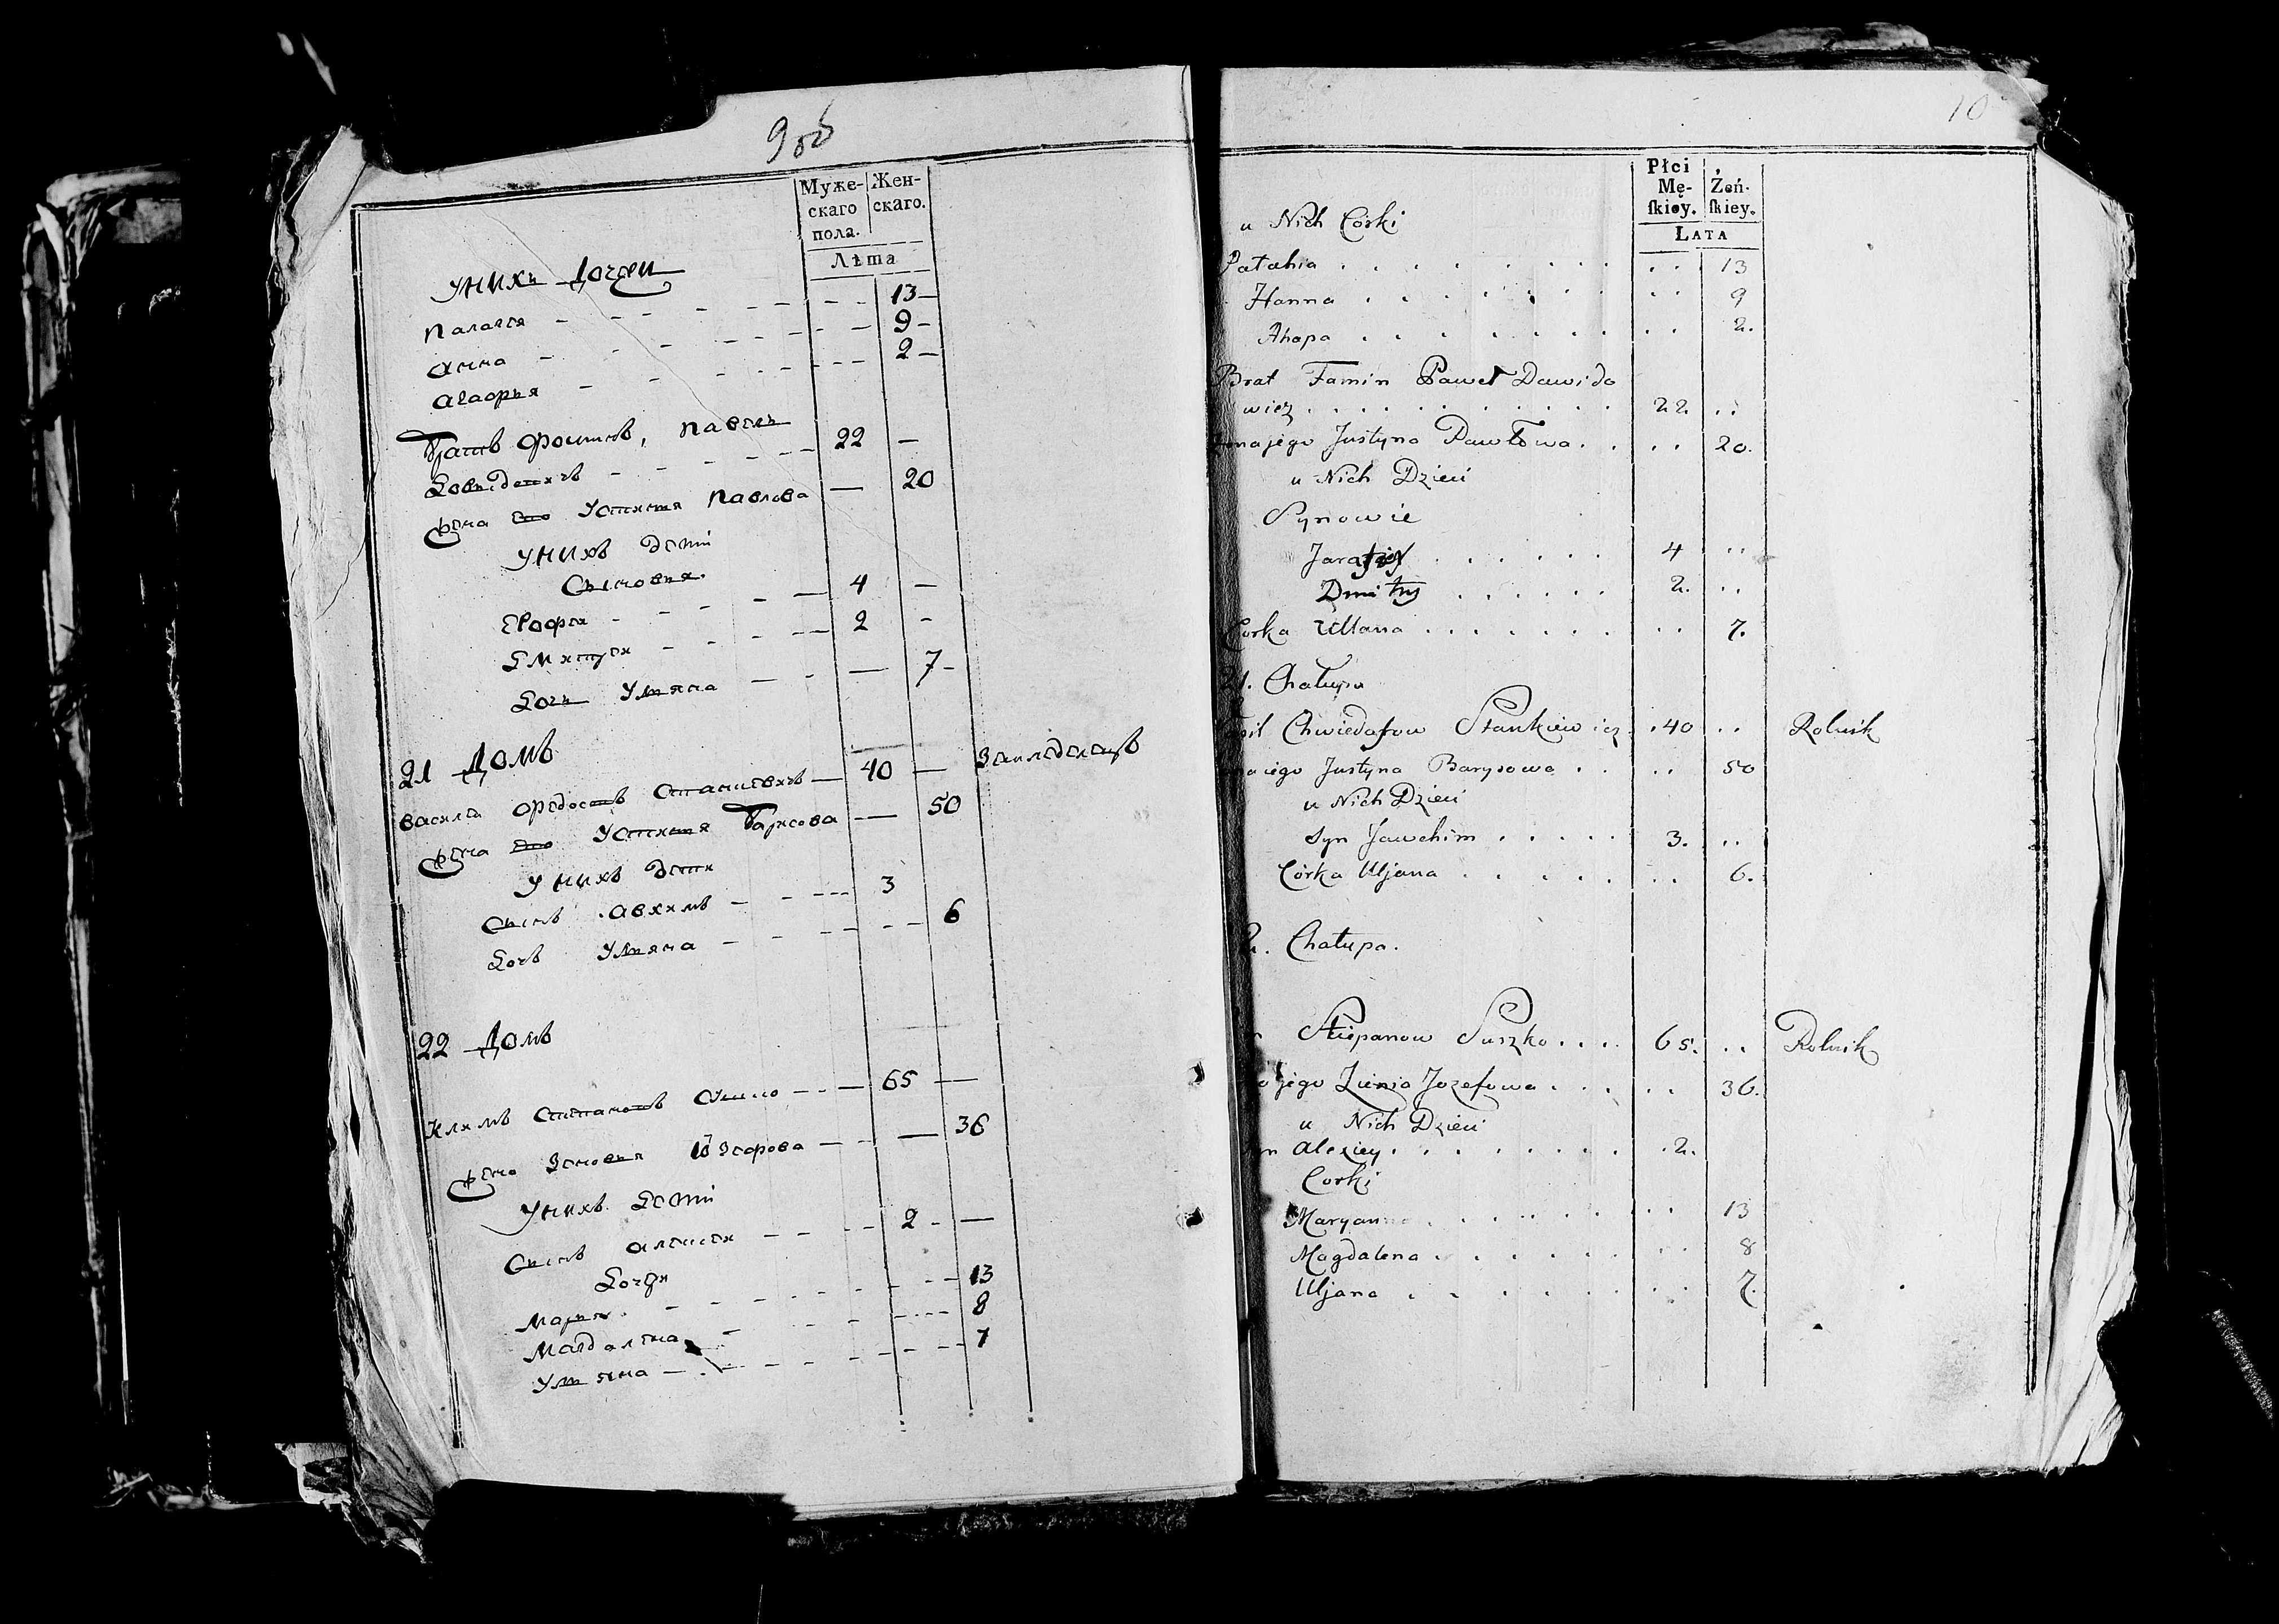 9 об
Муже- Жен-
скаго скаго.
пола.
Лѣта
У нихъ Дочери
Палагея - - - - - - - 13 -
Анна - - - - - - - 9 -
Агафья - - - - - - 2 -
Братъ Фоминъ, Павелъ
Давыдовичъ - - - - - 22 -
Жена его Устинья Павлова — 20
У нихъ дети
Сыновья
Ерофей - - - - — 4 -
Дмитрей - - - - — 2 -
Дочь Ульяна - - — 7 -
21 Домъ
Василей Федосовъ Станкевичъ — 40 — Земледелецъ
Жена его Устинья Борисова — 50
У нихъ дети
Сынъ Авхимъ - - - - 3
Дочь Ульяна - - - - - 6
22 Домъ
Климъ Степановъ Сушко - - — 65 —
Жена Зеновья Юзефова - - — 36
У нихъ Дети
Сынъ Алексей - - - - 2 - —
Дочери
Марья - - - - - - - 13
Магдалена - - - - - 8
Ульяна - - - - - - - 7
10
Płci
Mę- Żeń-
ſkiey. ſkiey.
LATA
u Nich Córki
Patahia . . . . . . . . . . 13
Hanna . . . . . . . . . 9
Ahapa . . . . . . . . . 2.
Brat Famin Paweł Dawido
wicz . . . . . . . . . . 22. ..
żona jego Justyna Pawłowa . . . . 20.
u Nich Dzieci
Synowie
Jarafiey . . . . . . 4 ..
Dmitry . . . . . . 2. ..
Córka Ullana . . . . . . . . . 7.
21. Chałupa
Chwiedosow Stankiewicz . 40 .. Rolnik
jego Justyna Barysowa . . .. 50
u Nich Dzieci
Syn Jawchim . . . . . 3. ..
Córka Uljana . . . . . . .. 6.
2. Chałupa.
Stiepanow Suszko . . . . 65. .. Rolnik
jego Zienia Jozefowa . . . . .. 36.
u Nich Dzieci
Alexiey . . . . . . . . . 2.
Corki
Maryanna . . . . . . . . 13
Magdalena . . . . . . . . 8
Uljana . . . . . . . . 7.